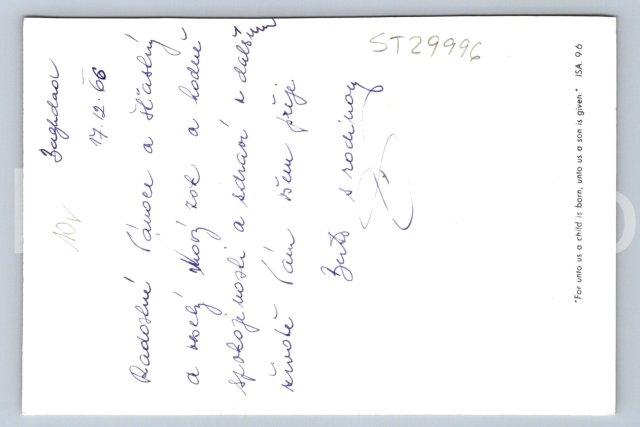 Baghdad
17.12.66
Radostné Vánoce a šťastný
a veselý Nový rok a hodně
spokojenosti a zdraví v dalším
životě Vám všem přeje
s rodinou
ST29996
"For unto us a child is born, unto us a son is given." ISA. 9.6